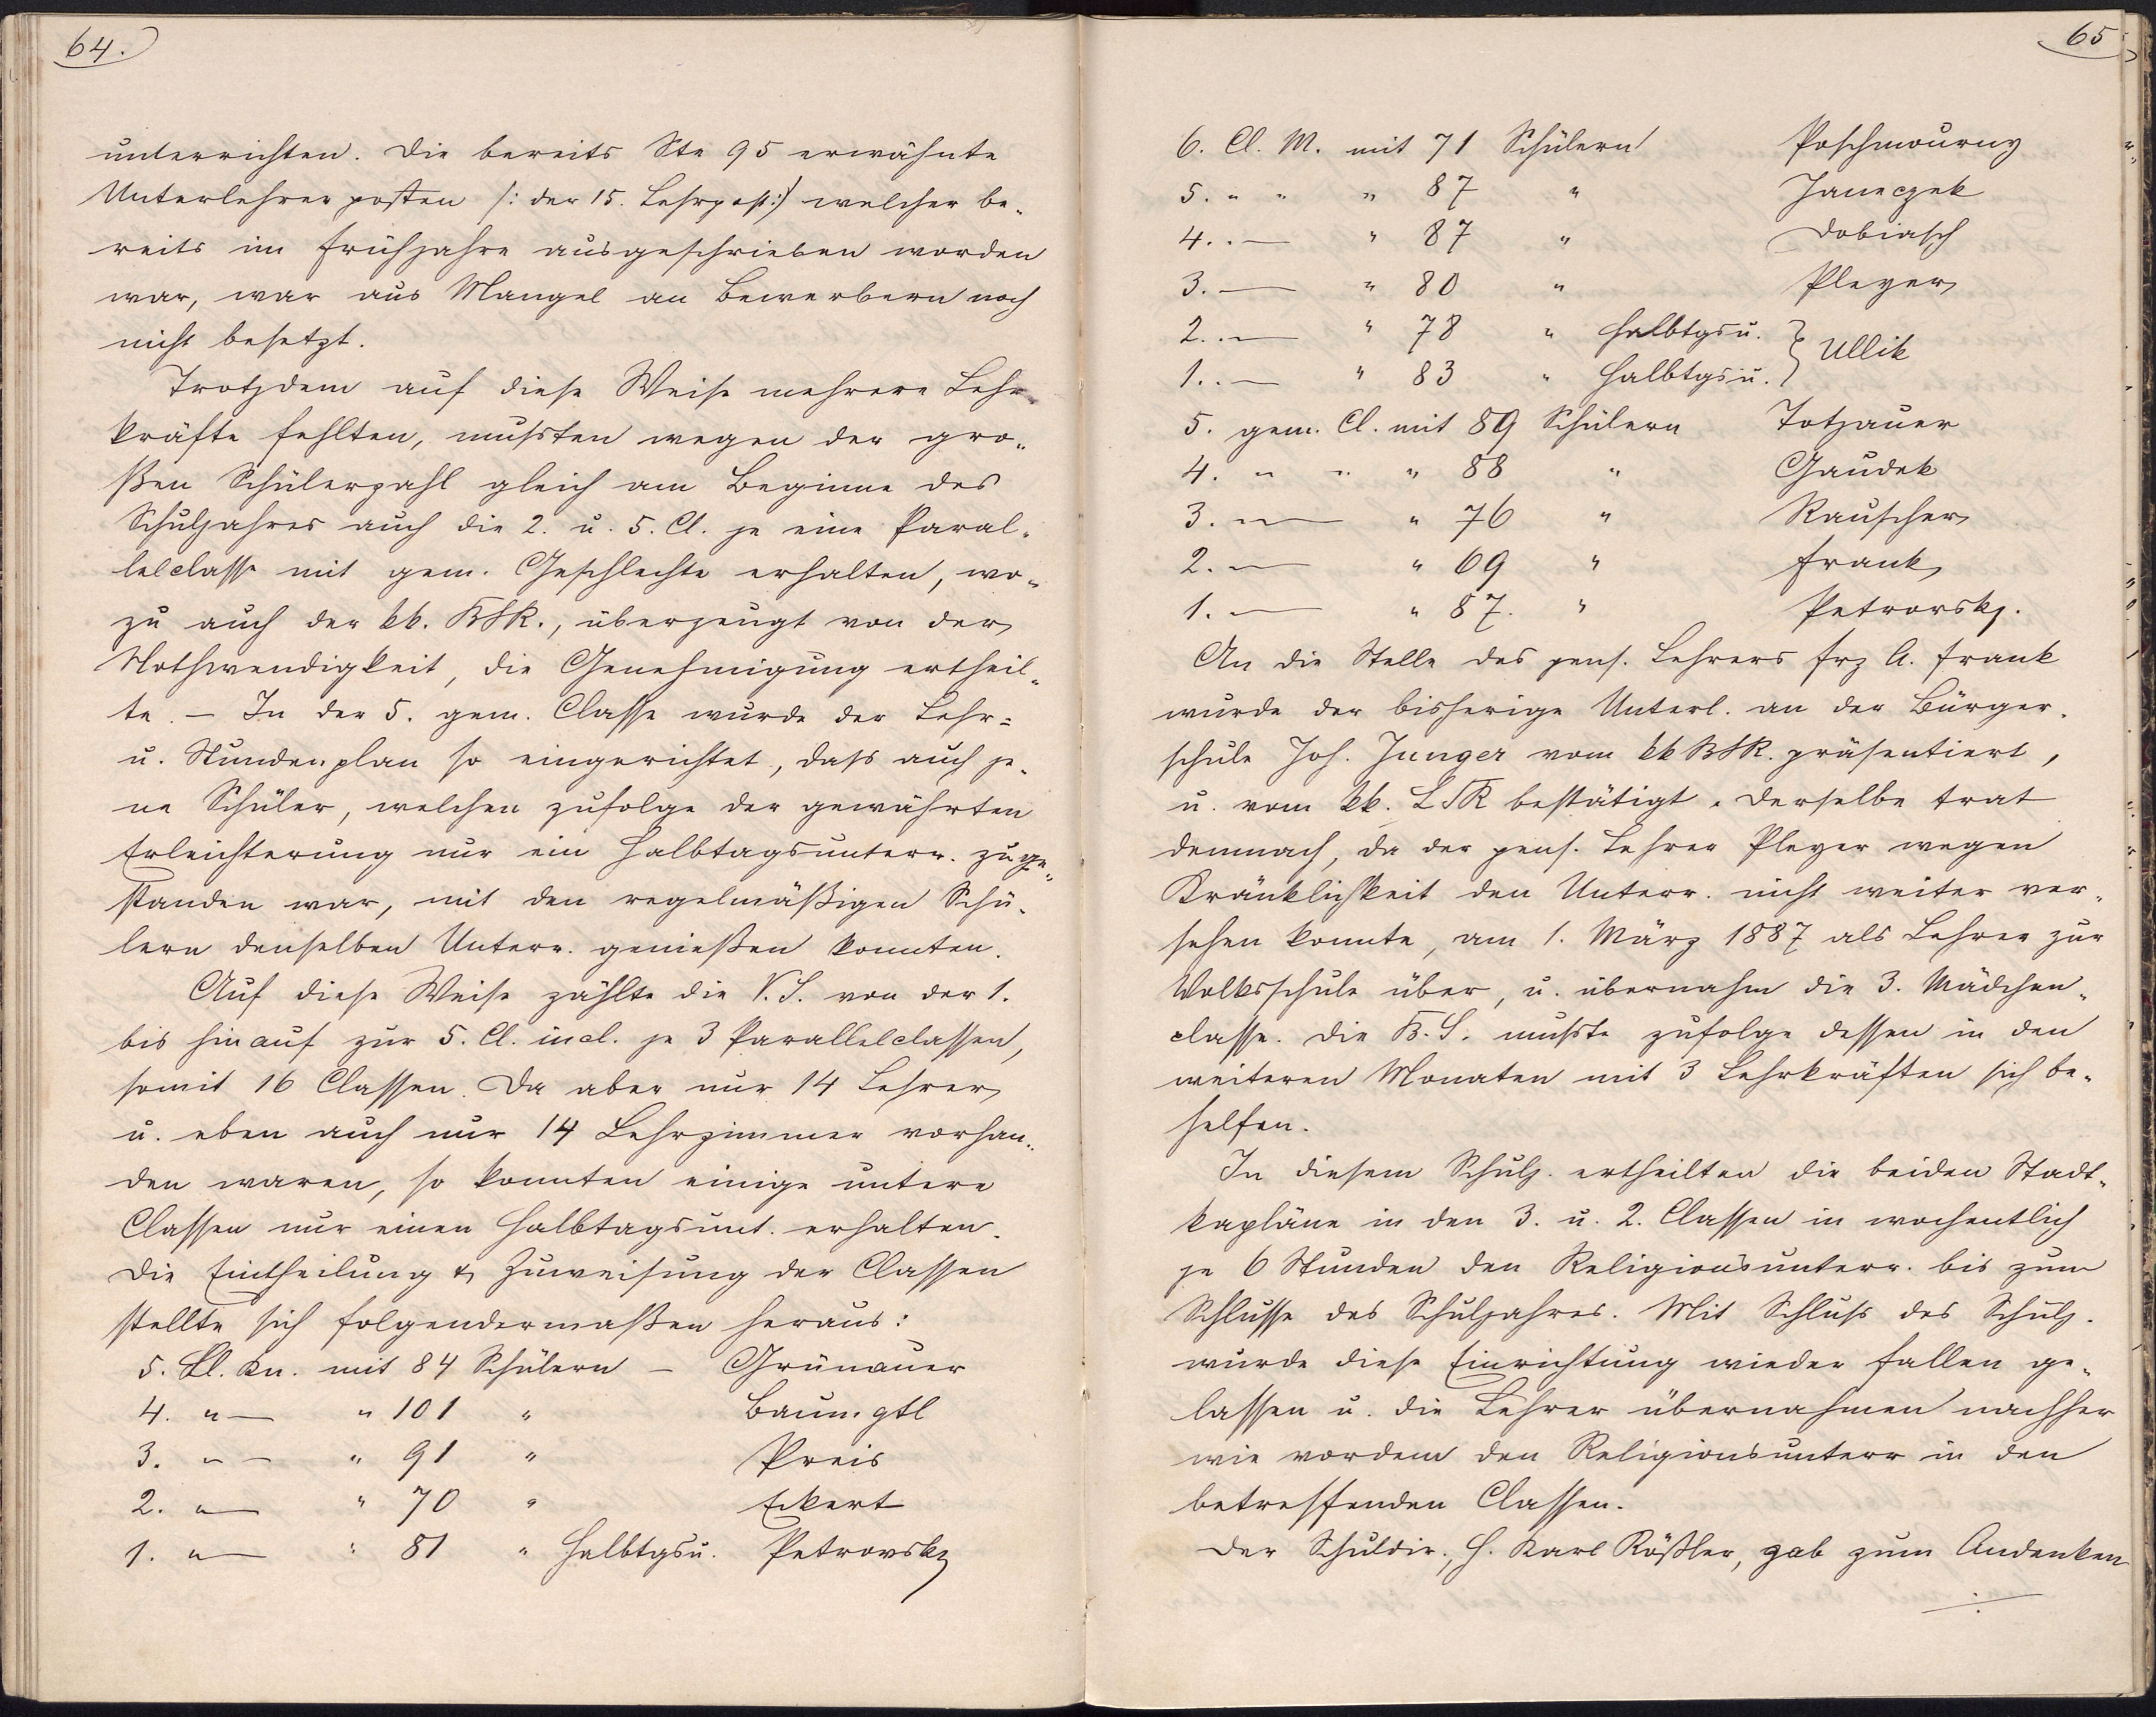 64.
unterrichten. Die bereits Ste 95 erwähnte
Unterlehrerposten /: der 15. Lehrpost:/ welcher be-
reits im Frühjahre ausgeschrieben worden
war, war aus Mangel an Bewerbern noch
nicht besetzt.
Trotzdem auf diese Weise mehrere Lehr-
kräfte fehlten, mußten wegen der gro-
ßen Schülerzahl gleich am Beginne des
Schuljahres auch die 2. u. 5. Cl. je eine Paral-
lelclasse mit gem. Geschlechte erhalten, wo-
zu auch der kk. BSR., überzeugt von der
Nothwendigkeit, die Genehmigung ertheil-
te. – In der 5. gem. Classe wurde der Lehr-
u. Stundenplan so eingerichtet, daß auch je-
ne Schüler, welchen zufolge der gewährten
Erleichterung nur ein Halbtagsunterr. zuge-
standen war, mit den regelmäßigen Schü-
lern denselben Unterr. genießen konnten.
Auf diese Weise zählte die V. S. von der 1.
bis hinauf zur 5. Cl. incl. je 3 Parallelclassen,
somit 16 Classen. Da aber nur 14 Lehrer
u. eben auch nur 14 Lehrzimmer vorhan-
den waren, so konnten einige untere
Classen nur einen Halbtagsunt. erhalten.
Die Eintheilung & Zuweisung der Classen
stellte sich folgendermaßen heraus:
5. Cl. Kn. mit 84 Schülern – Grünauer
4. " — " 101 " Baumgtl
3. " — " 91 " Preis
2. " — " 70 " Eckert
1. " — " 81 " Halbtgsu. Petrovsky
65
6. Cl. M. mit 71 Schülern Poschmourny
5. " " " 87 " Janeczek
4. " — " 87 " Dobiasch
3. — " 80 " Pleyer
2. " — " 78 " Halbtgsu.
1. " — " 83 " Halbtgsu. } Ullik
5. gem. Cl. mit 89 Schülern Totzauer
4. " " " 88 " Gaudek
3. " — " 76 " Rauscher
2. " — " 69 " Frank
1. — " 87. " Petrovsky.
An die Stelle des pens. Lehrers Frz A. Frank
wurde der bisherige Unterl. an der Bürger-
schule Joh. Junger vom kk BSR. präsentiert,
u. vom kk. LSR bestätigt. Derselbe trat
demnach, da der pens. Lehrer Pleyer wegen
Kränklichkeit den Unterr. nicht weiter ver-
sehen konnte, am 1. März 1887 als Lehrer zur
Volksschule über, u. übernahm die 3. Mädchen-
classe. Die B. S. mußte zufolge dessen in den
weiteren Monaten mit 3 Lehrkräften sich be-
helfen.
In diesem Schulj. ertheilten die beiden Stadt-
kapläne in den 3. u. 2. Classen in wochentlich
je 6 Stunden den Religionsunterr. bis zum
Schlusse des Schuljahres. Mit Schluß des Schulj.
wurde diese Einrichtung wieder fallen ge-
lassen u. die Lehrer übernahmen nachher
wie vordem den Religionsunterr in den
betreffenden Classen.
Der Schuldir., H. Karl Rößler, gab zum Andenken